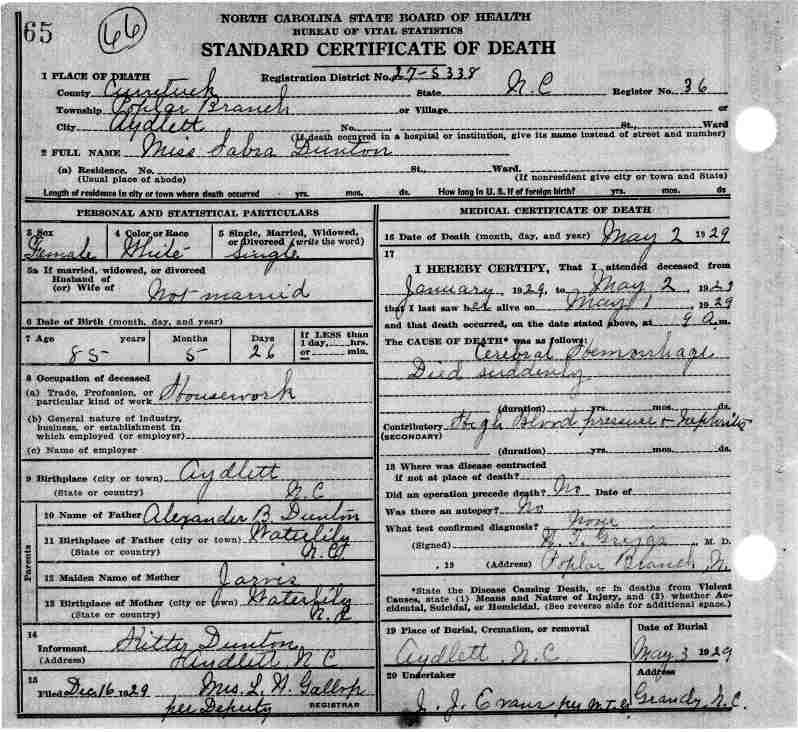 65
66
NORTH CAROLINA STATE BOARD OF HEALTH
BUREAU OF VITAL STATISTICS
STANDARD CERTIFICATE OF DEATH
1 PLACE OF DEATH Registration District No. 27-5338
County Currituck State N.C Register No. 36
Township Poplar Branch or Village or
City Aydlett No. St., Ward
(If death occurred in a hospital or institution, give its name instead of street and number)
2 FULL NAME Miss Sabra Dunton
(a) Residence. No. St., Ward.
(Usual place of abode) (If nonresident give city or town and State)
Length of residence in city or town where death occurred yrs. mos. ds. How long in U. S. if of foreign birth? yrs. mos. ds.
PERSONAL AND STATISTICAL PARTICULARS
3 Sex 4 Color or Race 5 Single, Married, Widowed, or Divorced (write the word)
Female White Single
5a If married, widowed, or divorced
Husband of
(or) Wife of Not married
6 Date of Birth (month, day, and year)
7 Age years Months Days If LESS than
1 day, hrs.
or min.
85 5 26
8 Occupation of deceased
(a) Trade, Profession, or
particular kind of work Housework
(b) General nature of industry,
business, or establishment in
which employed (or employer)
(c) Name of employer
9 Birthplace (city or town) Aydlett
(State or country) N.C
Parents
10 Name of Father Alexander B Dunton
11 Birthplace of Father (city or town) Waterlily
(State or country) N.C
12 Maiden Name of Mother Jarvis
13 Birthplace of Mother (city or town) Waterlily
(State or country) N.C
14
Informant Kitty Dunton
(Address) Aydlett N C
15
Filed Dec 16 1929 Mrs. L. N. Gallop
per Deputy REGISTRAR
MEDICAL CERTIFICATE OF DEATH
16 Date of Death (month, day, and year) May 2 1929
17
I HEREBY CERTIFY, That I attended deceased from
January 1929, to May 2, 1929
that I last saw her alive on May 1, 1929
and that death occurred, on the date stated above, at 9 a.m.
The CAUSE OF DEATH* was as follows:
Cerebral Hemorrhage
Died suddenly
(duration) yrs. mos. ds.
Contributory High Blood pressure + Nephritis
(SECONDARY)
(duration) yrs. mos. ds.
18 Where was disease contracted
if not at place of death?
Did an operation precede death? No Date of
Was there an autopsy? No
What test confirmed diagnosis? None
(Signed) W. T. Griggs M. D.
, 19 (Address) Poplar Branch, N.
*State the Disease Causing Death, or in deaths from Violent
Causes, state (1) Means and Nature of Injury, and (2) whether Ac-
cidental, Suicidal, or Homicidal. (See reverse side for additional space.)
19 Place of Burial, Cremation, or removal Date of Burial
Aydlett N.C. May 3 1929
20 Undertaker Address
J. J. Evans per Grandy, N.C.